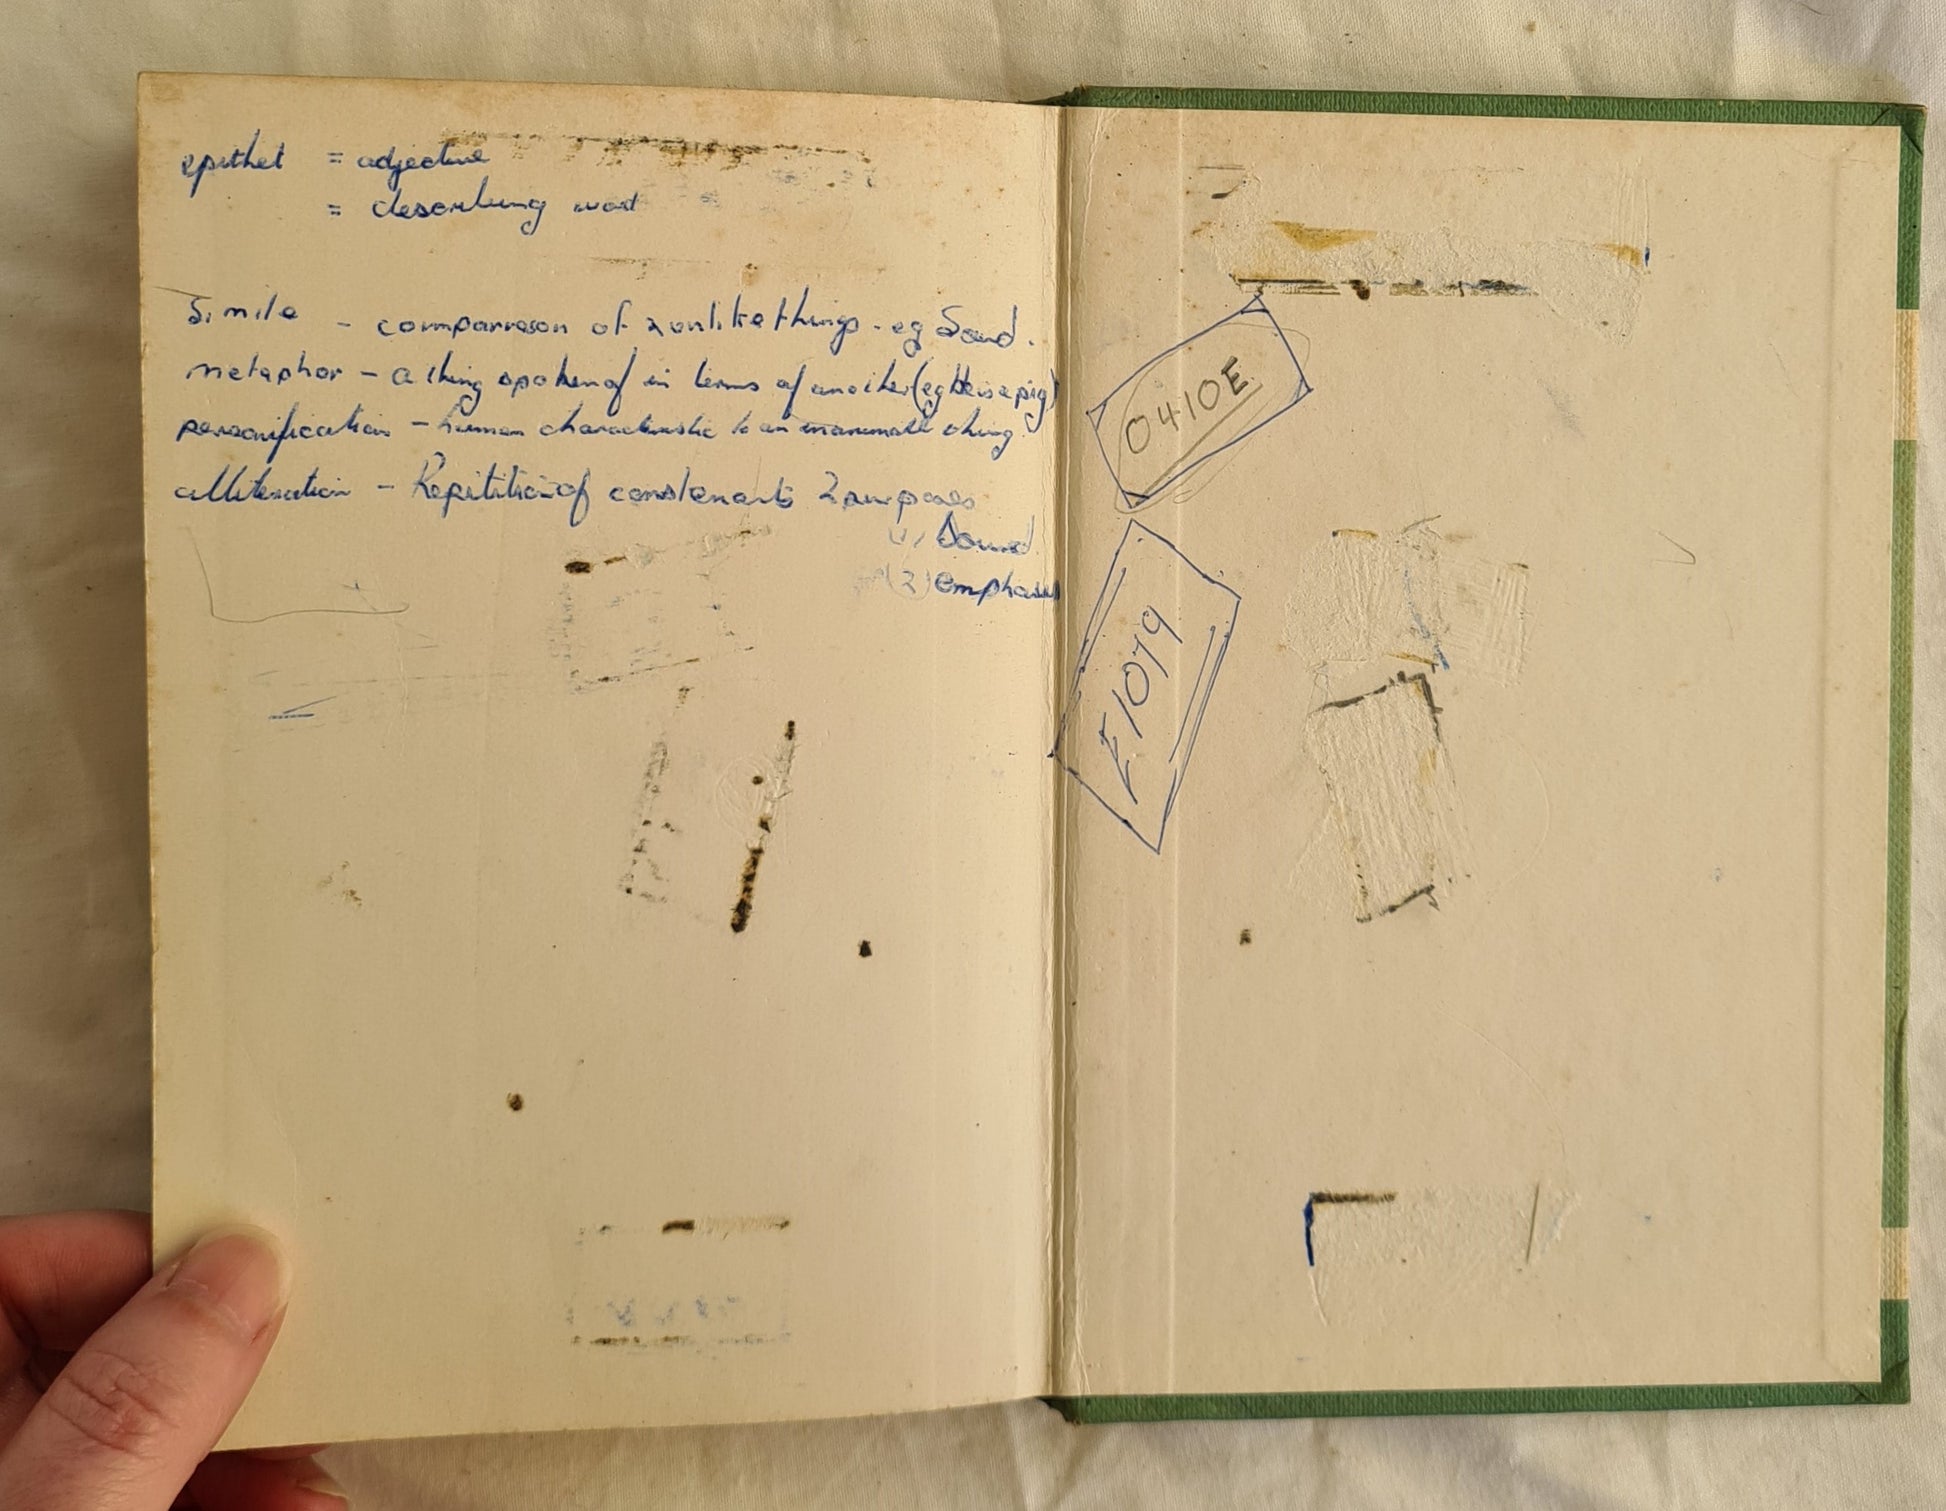 epithet = adjective
= describing word
Simile - comparreson of 2 unlike things - eg Sand.
metaphor - a thing spoken of in terms of another (eg He is a pig)
personification - human characteristic to an inanimate thing
alliteration - Repitition of constenants 2 purposes
(1) Sound
(2) emphasis
0410E
E1079